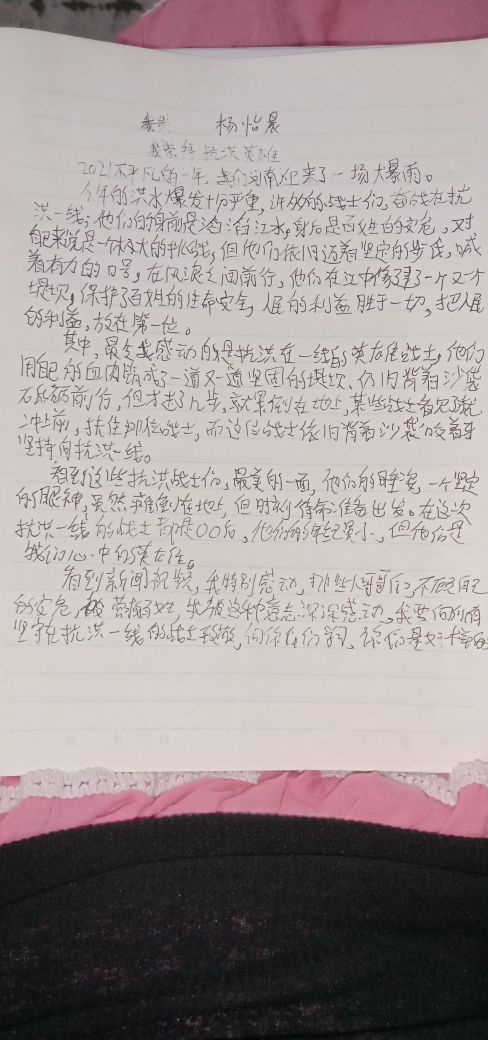 杨怡晨
我崇拜抗洪英雄
2021不平凡的一年,我们河南迎来了一场大暴雨。
今年的洪水爆发十分严重,许多的战士们,奋战在抗
洪一线,他们的身前是滔滔江水,身后是百姓的安危,对
自己来说是一个极大的挑战,但他们依旧迈着坚定的步伐,喊
着有力的口号,在风浪之间前行,他们在江中像建了一个又一个
堤坝,保护了百姓的生命安全,人民的利益胜于一切,把人民
的利益,放在第一位。
其中,最令我感动的是抗洪在一线的英雄战士,他们
用自己的血肉筑成了一道又一道坚固的堤坝,仍旧背着沙袋
石头前行,但才走了几步,就累倒在地上,某些战士看见了就
冲上前,扶住那位战士,而这位战士依旧背着沙袋咬着牙
坚持向抗洪一线。
看到这些抗洪战士们,最美的一面,他们的睡姿,一个坚定
的眼神,虽然瘫倒在地上,但时刻待命准备出发。在这次
抗洪一线的战士都是00后,他们的年纪虽小,但他们是
我们心中的英雄。
看到新闻视频,我特别感动,那些大哥哥们,不顾自己
的安危,救百姓,我被这种意志深深感动,我要向所有
坚守在抗洪一线的战士致敬,向你们学习,你们是好榜样